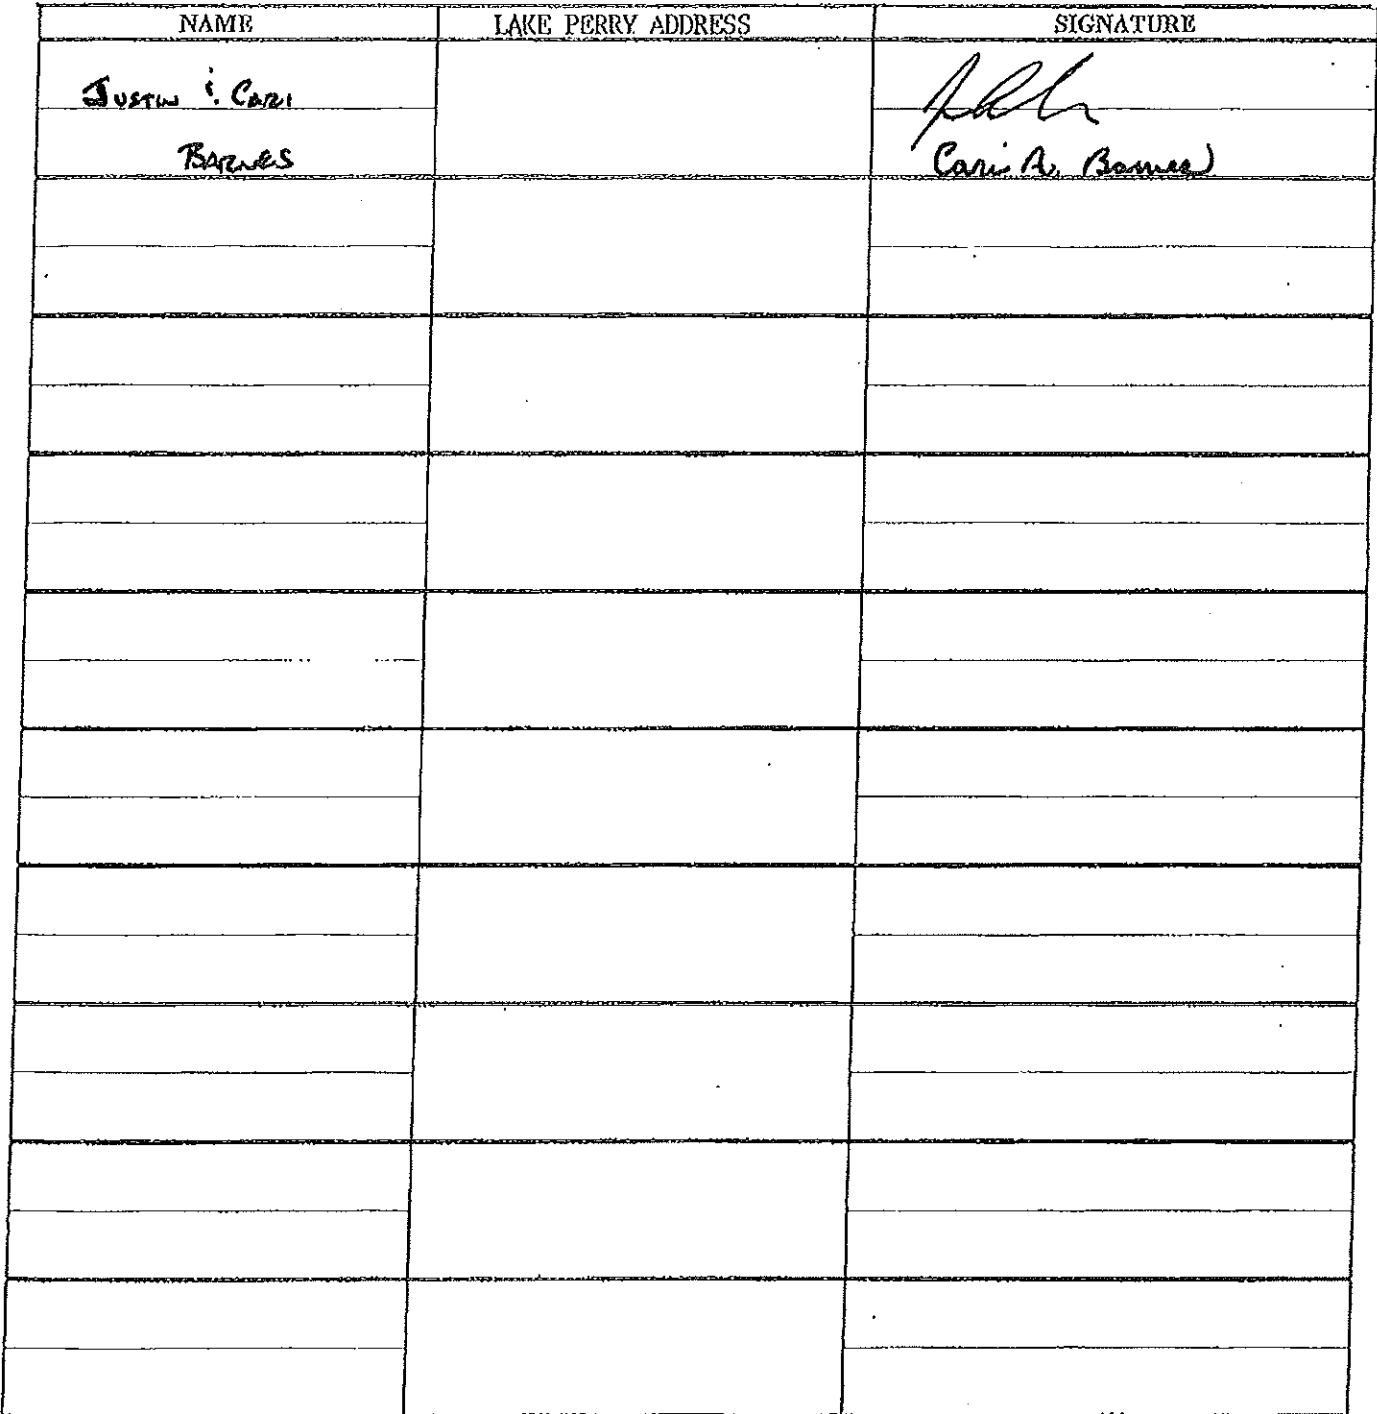 NAME LAKE PERRY ADDRESS SIGNATURE
JUSTIN & CARI
BARNES
Cari A. Barnes